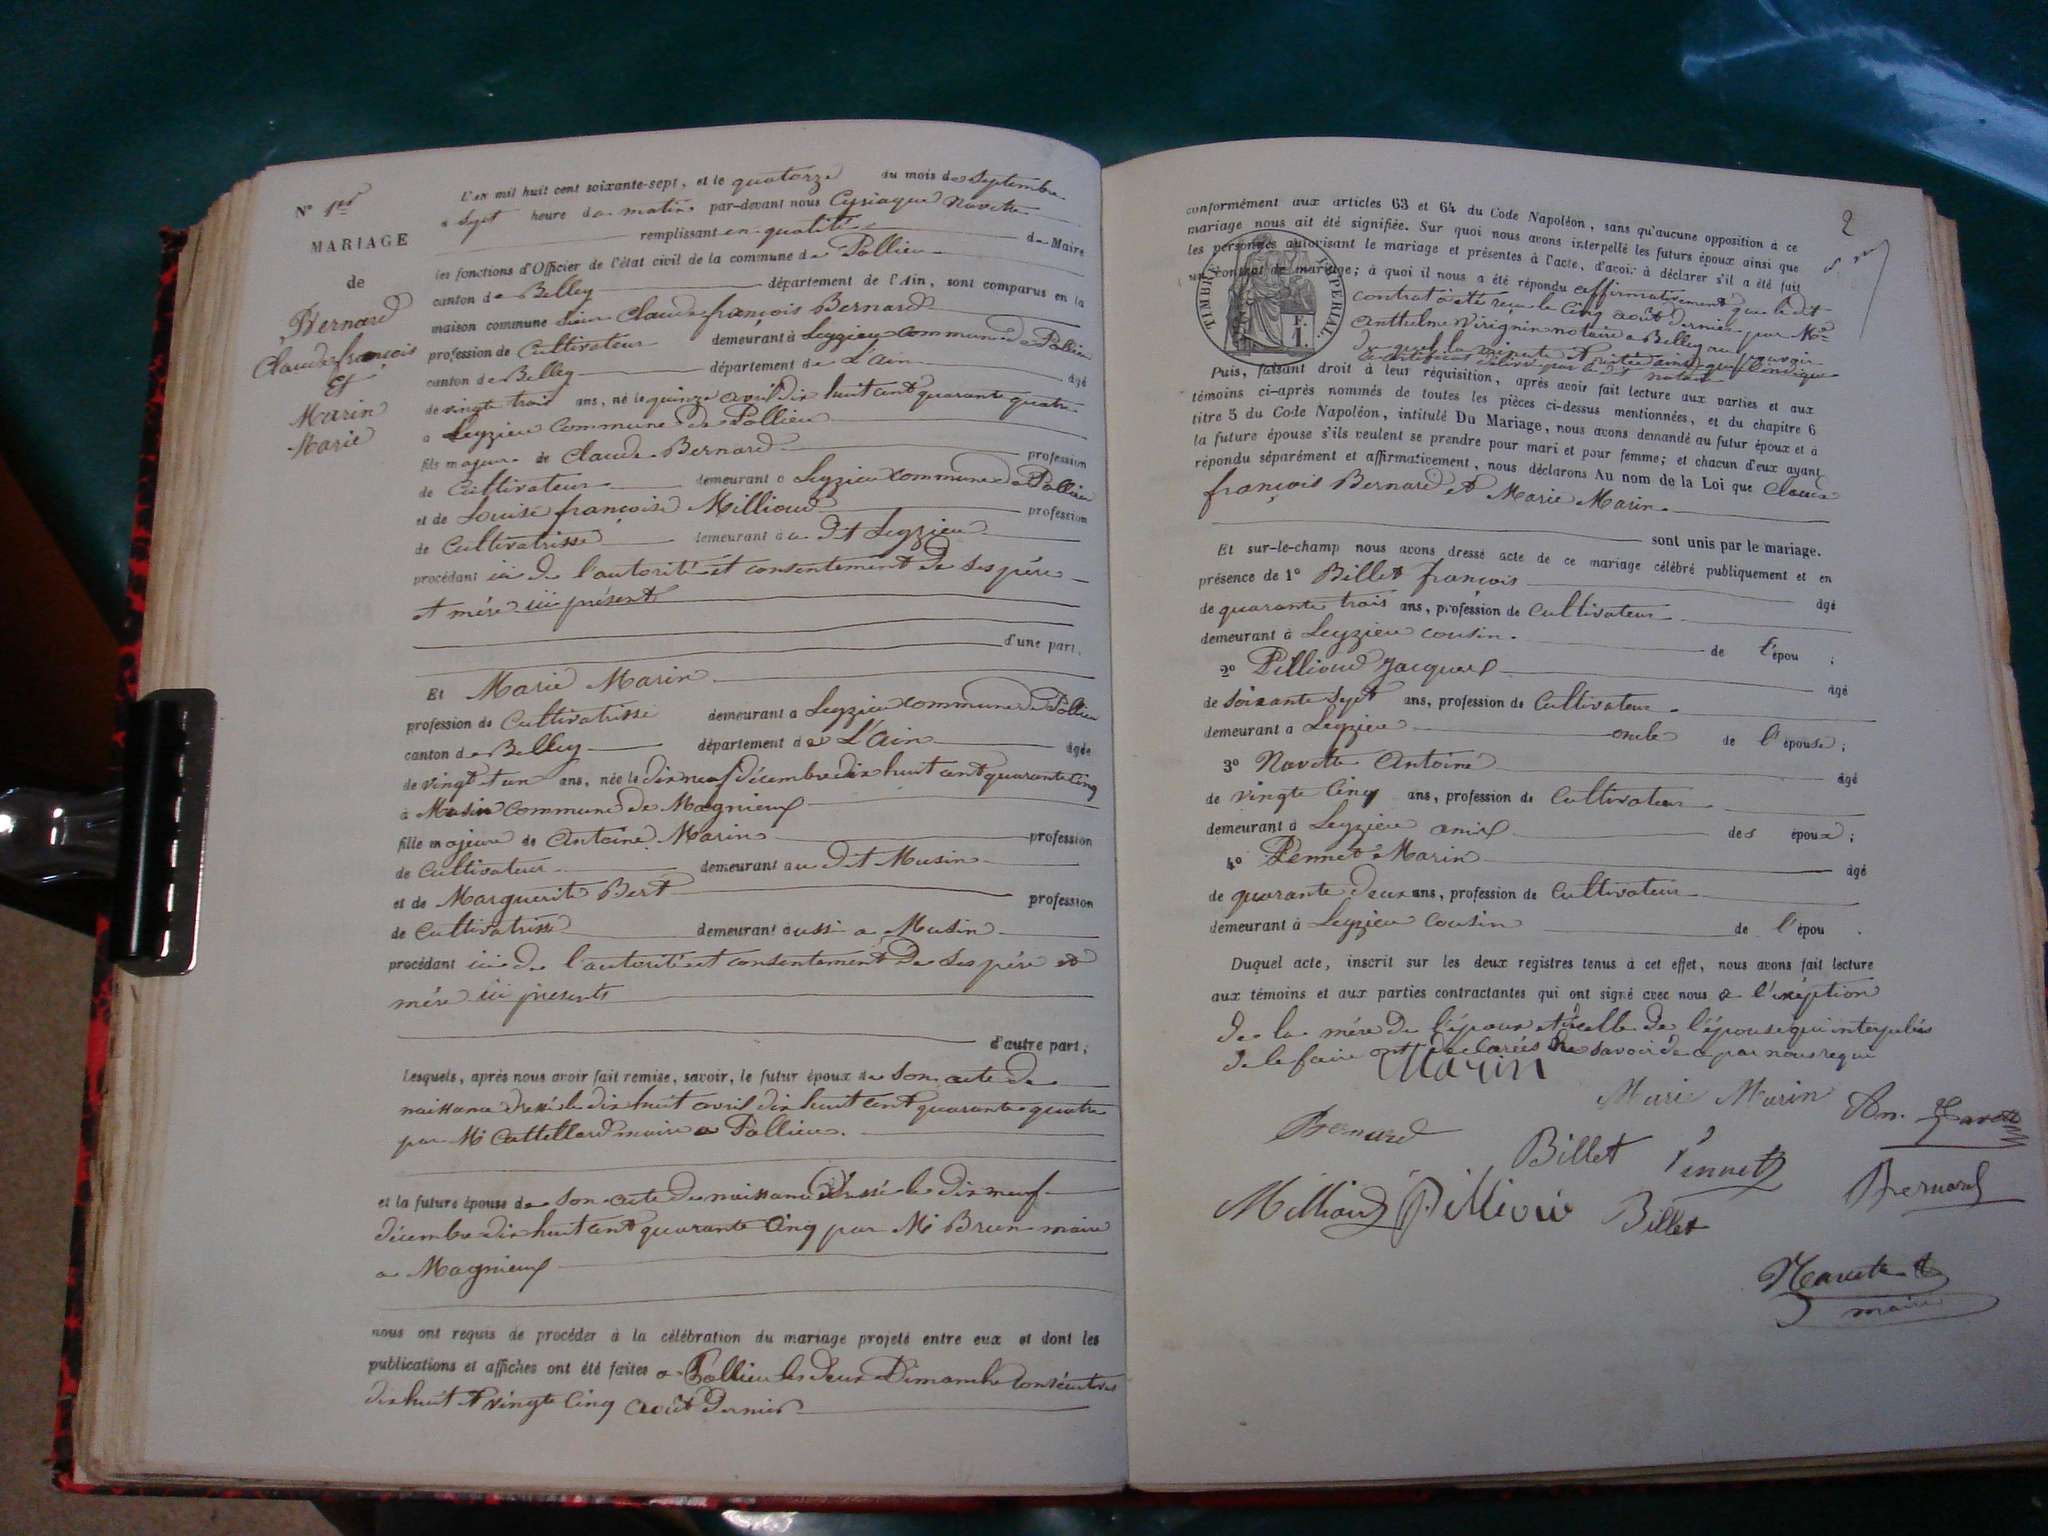 N° 1er
MARIAGE
de
Bernard
Claude françois
Et
Marin
Marie
L'an mil huit cent soixante-sept, et le quatorze du mois de Septembre
a Sept heure du matin par-devant nous Cyriaque Navette
remplissant en qualité de Maire
les fonctions d'Officier de l'état civil de la commune de Pollieu
canton de Belley département de l'Ain, sont comparus en la
maison commune Sieur Claude françois Bernard
profession de Cultivateur demeurant à Leyzieu commune de Pollieu
canton de Belley département de L'ain âgé
de vingt trois ans, né le quinze avril dix huit cent quarante quatre
a Leyzieu Commune de Pollieu
fils majeur de Claude Bernard profession
de Cultivateur demeurant a Leyzieu commune de Pollieu
et de Louise françoise Millioud profession
de Cultivatrisse demeurant au dit Leyzieu
procédant ici de l'autorité et consentement de ses père
et mère ici présent
d'une part.
Et Marie Marin
profession de Cultivatrisse demeurant a Leyzieu commune de Pollieu
canton de Belley département de L'ain âgée
de vingt et un ans, née le dix neuf décembre dix huit cent quarante Cinq
à Musin Commune de Magnieux
fille majeure de Antoine Marin profession
de Cultivateur demeurant au dit Musin
et de Marguerite Bert profession
de Cultivatrisse demeurant aussi a Musin
procédant ici de l'autorité et consentement de Ses père et
mère ici présents
d'autre part;
Lesquels, après nous avoir fait remise, savoir, le futur époux de Son acte de
naissance dressé le dix huit avril dix huit cent quarante quatre
par Mr Cattellard maire a Pollieu.
et la future épouse de Son acte de naissance dressé le dix neuf
décembre dix huit cent quarante Cinq par Mr Brun maire
a Magnieux
nous ont requis de procéder à la célébration du mariage projeté entre eux et dont les
publications et affiches ont été faites a Pollieu les deux Dimanche consécutives
dix huit et vingte Cinq août dernier
2
conformément aux articles 63 et 64 du Code Napoléon, sans qu'aucune opposition à ce
mariage nous ait été signifiée. Sur quoi nous avons interpellé les futurs époux ainsi que
les personnes autorisant le mariage et présentes à l'acte, d'avoir à déclarer s'il a été fait
un contrat de mariage; à quoi il nous a été répondu affirmativement que le dit
contrat a été reçu le Cinq août dernier par Me
Anthelme Virignin notaire a Belley au pouvoir
duquel la minute et
certificat délivré par le dit notaire
TIMBRE IMPERIAL
F.
1.
Puis, faisant droit à leur réquisition, après avoir fait lecture aux parties et aux
témoins ci-après nommés de toutes les pièces ci-dessus mentionnées, et du chapitre 6
titre 5 du Code Napoléon, intitulé Du Mariage, nous avons demandé au futur époux et à
la future épouse s'ils veulent se prendre pour mari et pour femme; et chacun d'eux ayant
répondu séparément et affirmativement, nous déclarons Au nom de la Loi que Claude
françois Bernard et Marie Marin
sont unis par le mariage.
Et sur-le-champ nous avons dressé acte de ce mariage célébré publiquement et en
présence de 1° Billet françois âgé
de quarante trois ans, profession de Cultivateur
demeurant à Leyzieu cousin de l'épou ;
2° Pillioud Jacques âgé
de Soixante Sept ans, profession de Cultivateur
demeurant a Leyzieu oncle de l'épouse;
3° Navette Antoine âgé
de vingte Cinq ans, profession de Cultivateur
demeurant à Leyzieu amis des époux;
4° Pennet Marin âgé
de quarante deux ans, profession de Cultivateur
demeurant à Leyzieu Cousin de l'épou .
Duquel acte, inscrit sur les deux registres tenus à cet effet, nous avons fait lecture
aux témoins et aux parties contractantes qui ont signé avec nous a l'exéption
de la mére de l'époux et celle de l'épouse qui interpelées
de le faire ont déclarées ne savoir de ce par nous requi
Marin
Marie Marin
An. Navette
Bernard
Billet
Pennet
Millioud
Pillioud
Billet
Bernard
Navette
maire